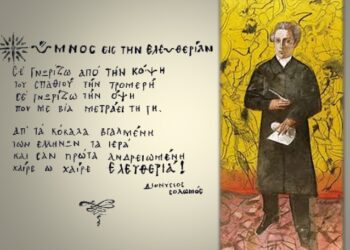 ὝΜΝΟΣ ΕΙΣ ΤΗΝ ΕΛΕΥΘΕΡΙΑΝ
ΣΕ ΓΝΩΡΙΖΩ ΑΠΟ ΤΗΝ ΚΟΨΗ
ΤΟΥ ΣΠΑΘΙΟΥ ΤΗΝ ΤΡΟΜΕΡΗ
ΣΕ ΓΝΩΡΙΖΩ ΤΗΝ ΟΨΗ
ΠΟΥ ΜΕ ΒΙΑ ΜΕΤΡΑΕΙ ΤΗ ΓΗ.
ΑΠ' ΤΑ ΚΟΚΑΛΑ ΒΓΑΛΜΕΝΗ
ΤΩΝ ΕΛΛΗΝΩΝ ΤΑ ΙΕΡΑ
ΚΑΙ ΣΑΝ ΠΡΩΤΑ ΑΝΔΡΕΙΩΜΕΝΗ
ΧΑΙΡΕ Ω ΧΑΙΡΕ ΕΛΕΥΘΕΡΙΑ!
ΔΙΟΝΥΣΙΟΣ
ΣΟΛΩΜΟΣ